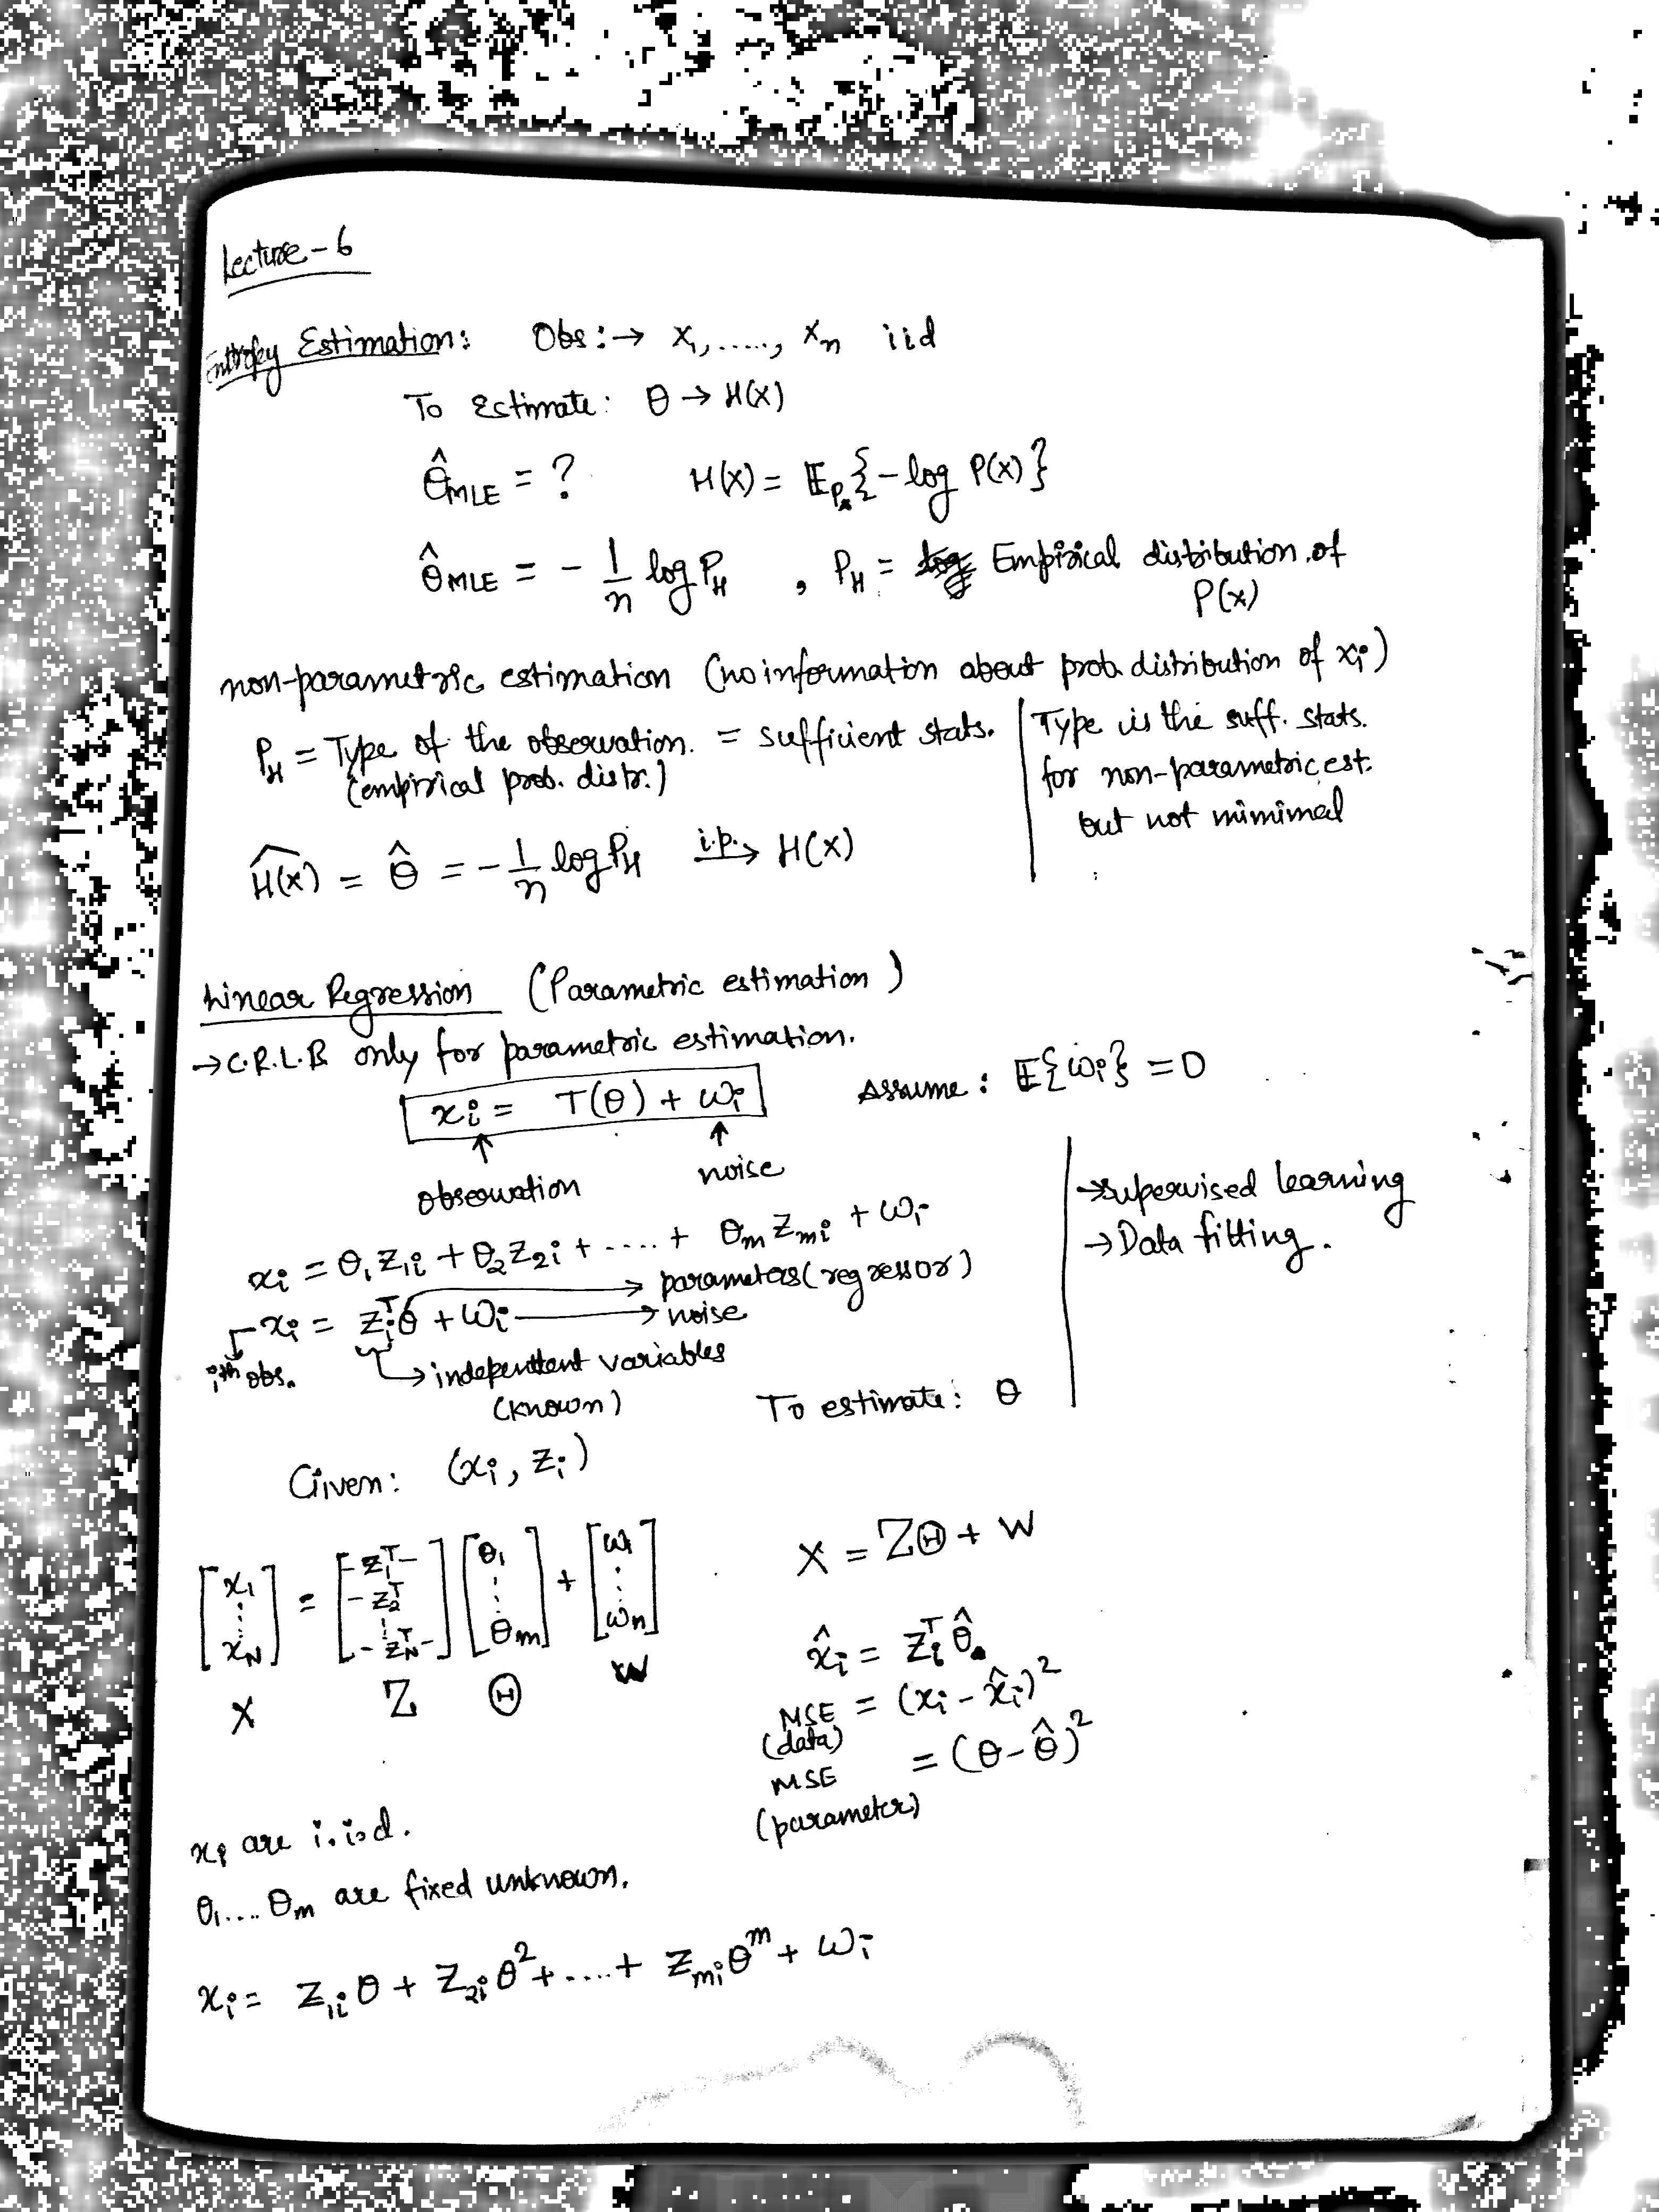 Lecture - 6
Entropy Estimation: Obs: → X₁, ....., Xn iid
To Estimate: θ → H(X)
θ̂MLE = ? H(X) = 𝔼Pₓ{-log P(X)}
θ̂MLE = - 1/n log PH , PH = Empirical distribution of
P(x)
non-parametric estimation (no information about prob. distribution of xi)
PH = Type of the observation. = sufficient stats.
(empirical prob. distr.)
Type is the suff. stats.
for non-parametric est.
but not minimal
Ĥ(X) = θ̂ = - 1/n log PH i.p.→ H(X)
Linear Regression (Parametric estimation)
→ C.R.L.B only for parametric estimation.
xi = T(θ) + ωi Assume: 𝔼{ωi} = 0
↑ ↑
observation noise
→ supervised learning
→ Data fitting.
xi = θ₁Z₁i + θ₂Z₂i + ..... + θm Zmi + ωi
→ parameters (regressor)
xi = ZiᵀΘ + ωi → noise
ith obs. → independent variables
(known) To estimate: θ
Given: (xi, Zi)
[x₁ ⋮ xN] = [-z₁ᵀ- -z₂ᵀ ⋮ -zNᵀ-] [θ₁ ⋮ θm] + [ω₁ ⋮ ωn] X = ZΘ + W
X Z Θ W
x̂i = Ziᵀ θ̂.
MSE = (xi - x̂i)²
(data)
MSE = (θ - θ̂)²
(parameter)
xi are i.i.d.
θ₁.... θm are fixed unknown.
xi = Z₁i θ + Z₂i θ² + ..... + Zmi θᵐ + ωi